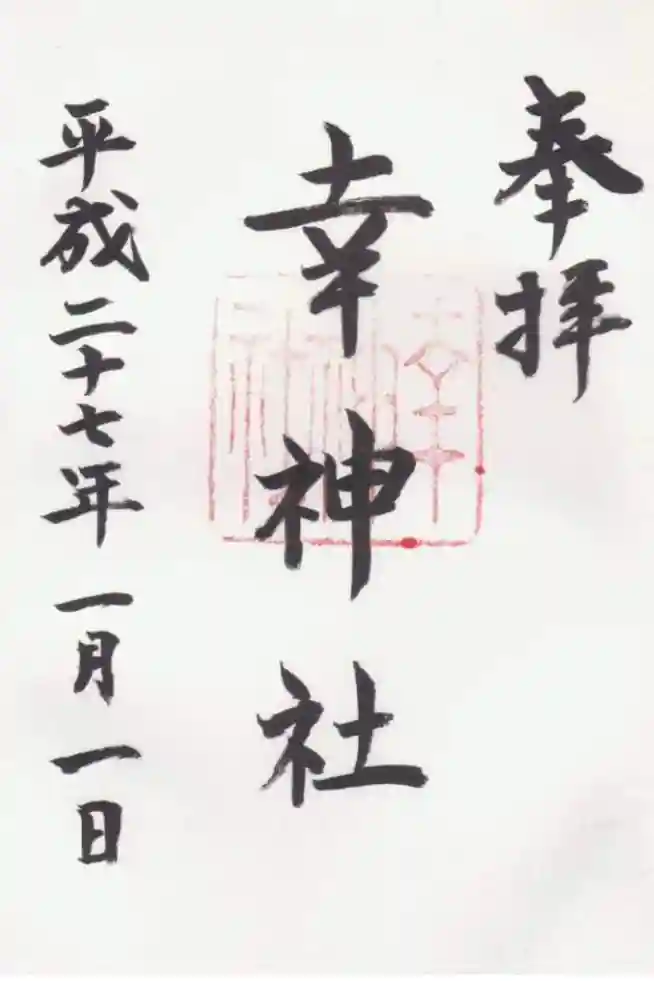 奉拝
幸神社
平成二十七年一月一日